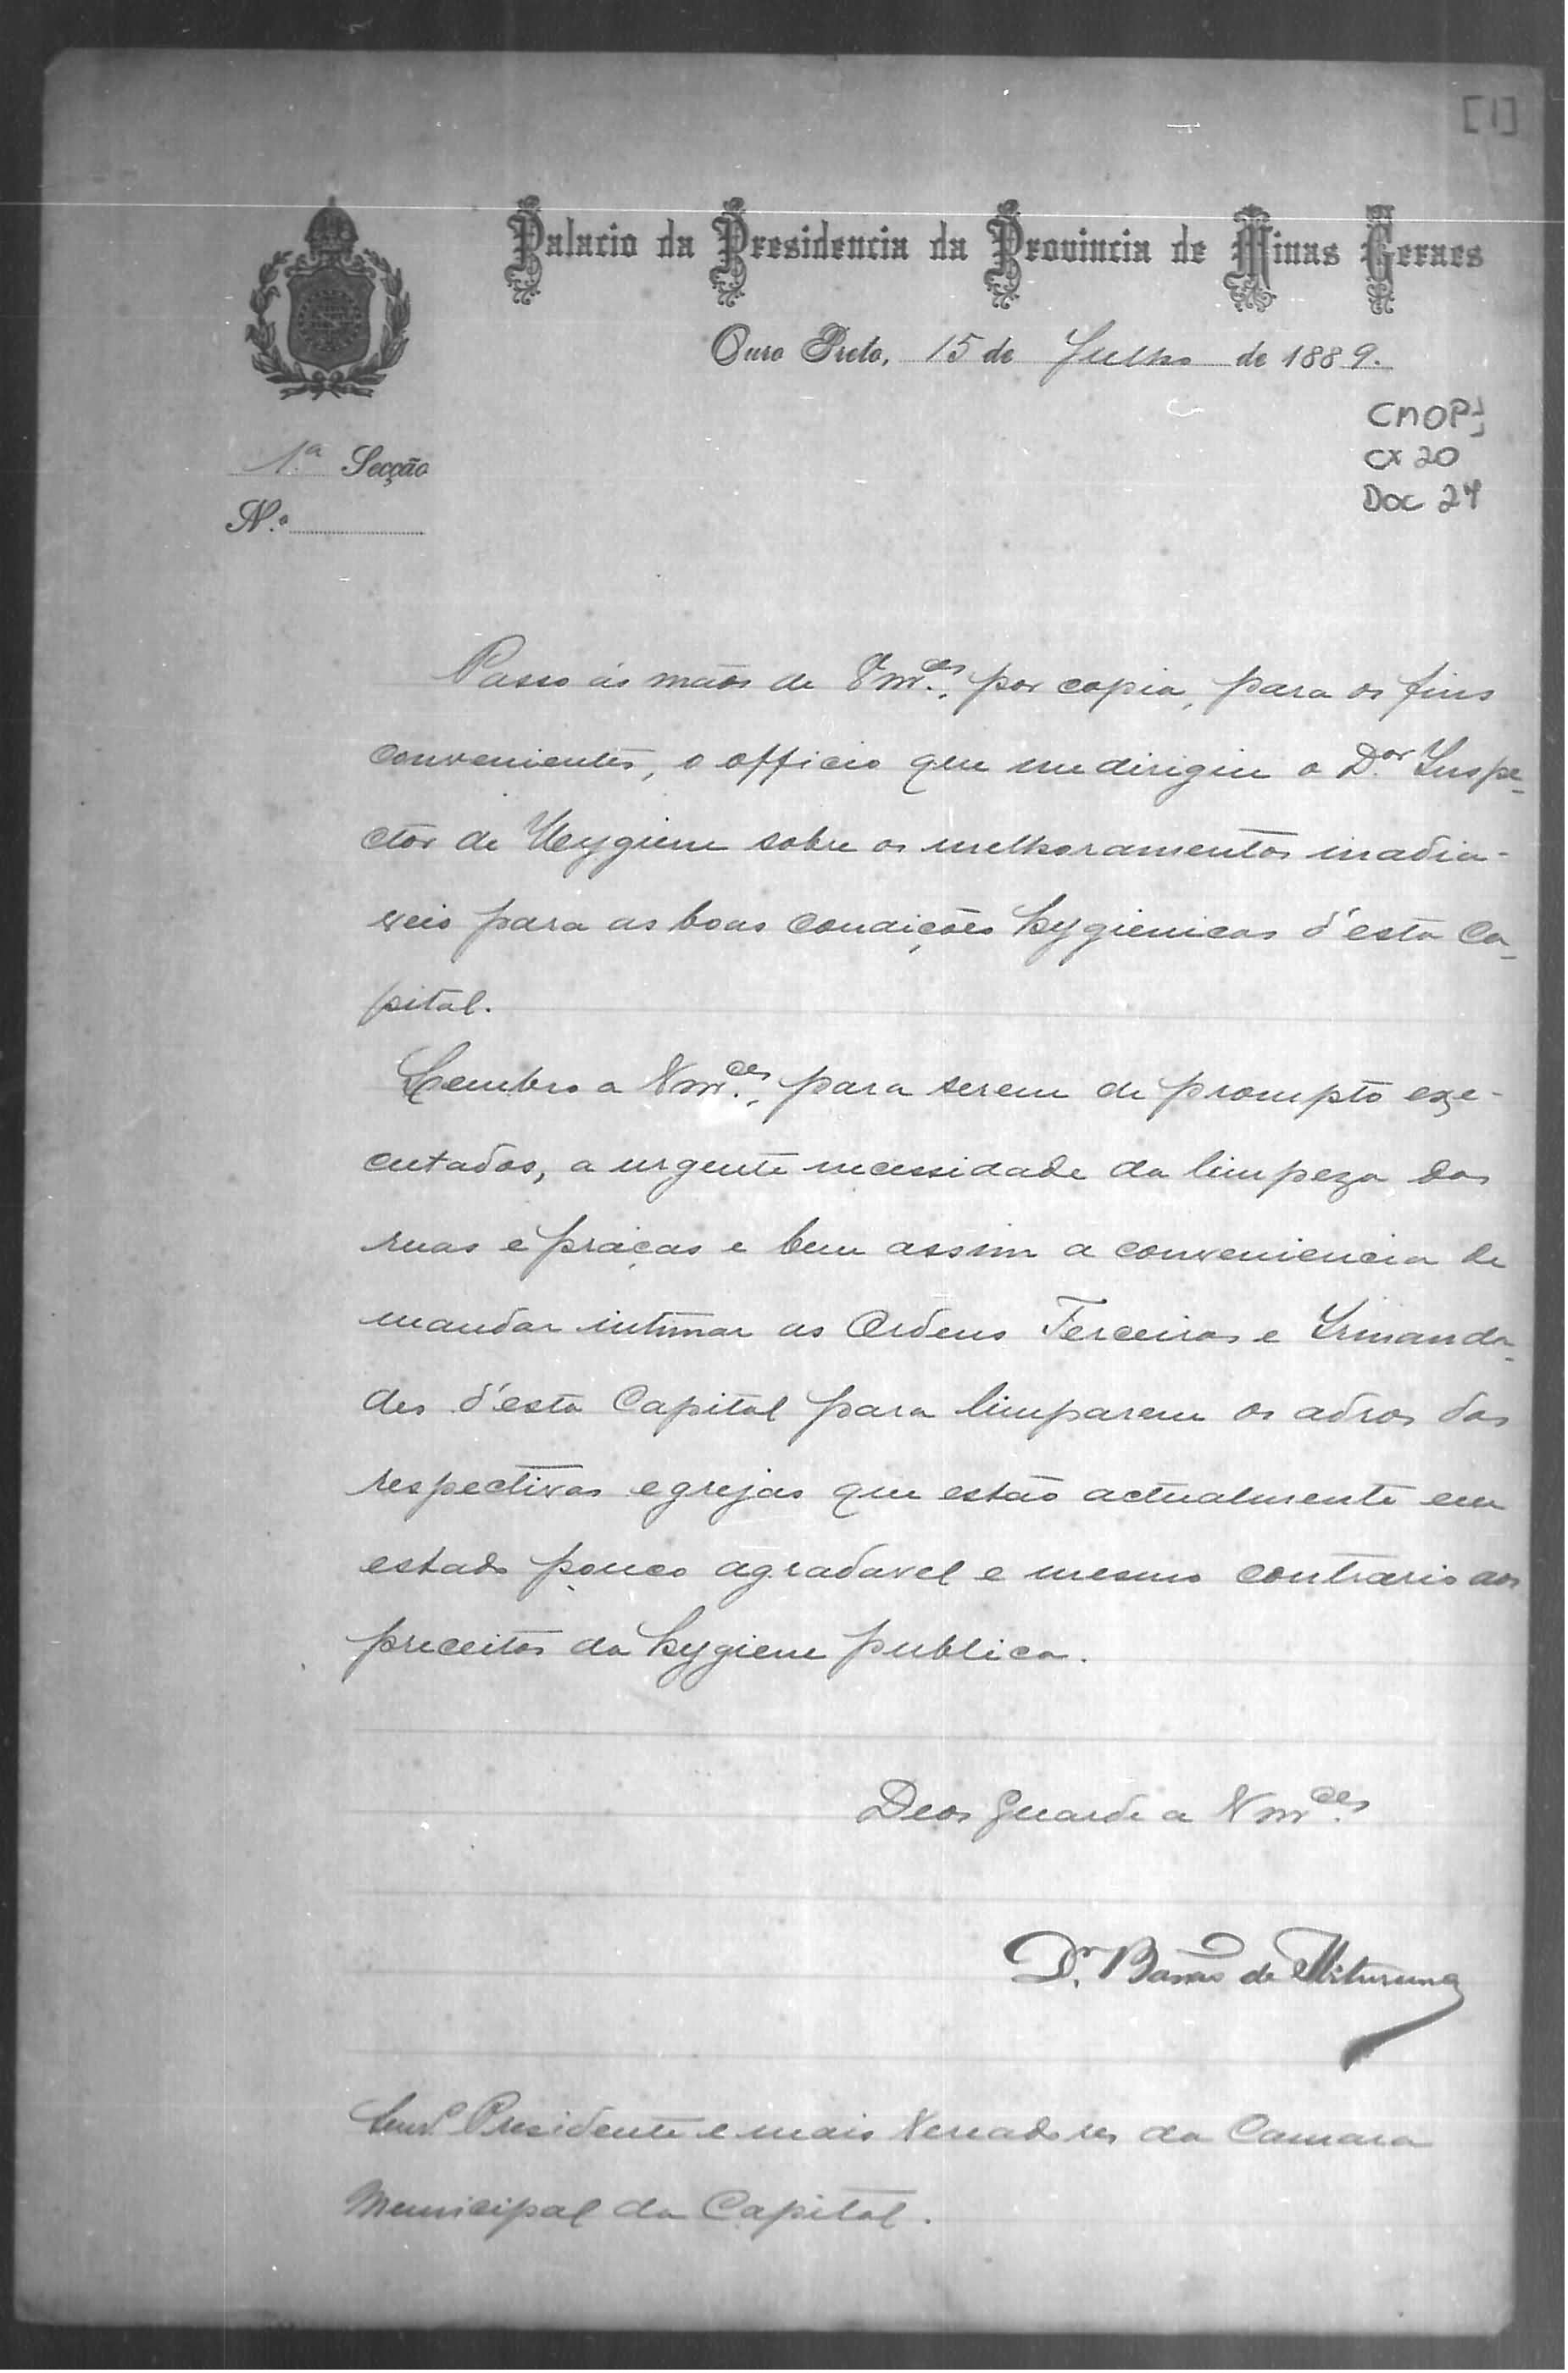 [1]
Palacio da Presidencia da Provincia de Minas Geraes
Ouro Preto, 15 de Julho de 1889.
CMOP
CX 20
DOC 24
1.ª Secção
N.º
Passo ás mãos de Vm.ces, por copia, para os fins
convenientes, o officio que me dirigiu o D.or Inspe-
ctor de Hygiene sobre os melhoramentos inadia-
veis para as boas condições hygienicas d'esta Ca-
pital.
Lembro a Vm.ces, para serem de prompto exe-
cutados, a urgente necessidade da limpeza das
ruas e praças e bem assim a conveniencia de
mandar intimar as Ordens Terceiras e Irmanda-
des d'esta Capital para limparem os adros das
respectivas egrejas que estão actualmente em
estado pouco agradavel e mesmo contrario aos
preceitos da hygiene publica.
Deos Guarde a Vm.ces
D.r Barão de Ibituruna
Presidente e mais Vereadores da Camara
Municipal da Capital.